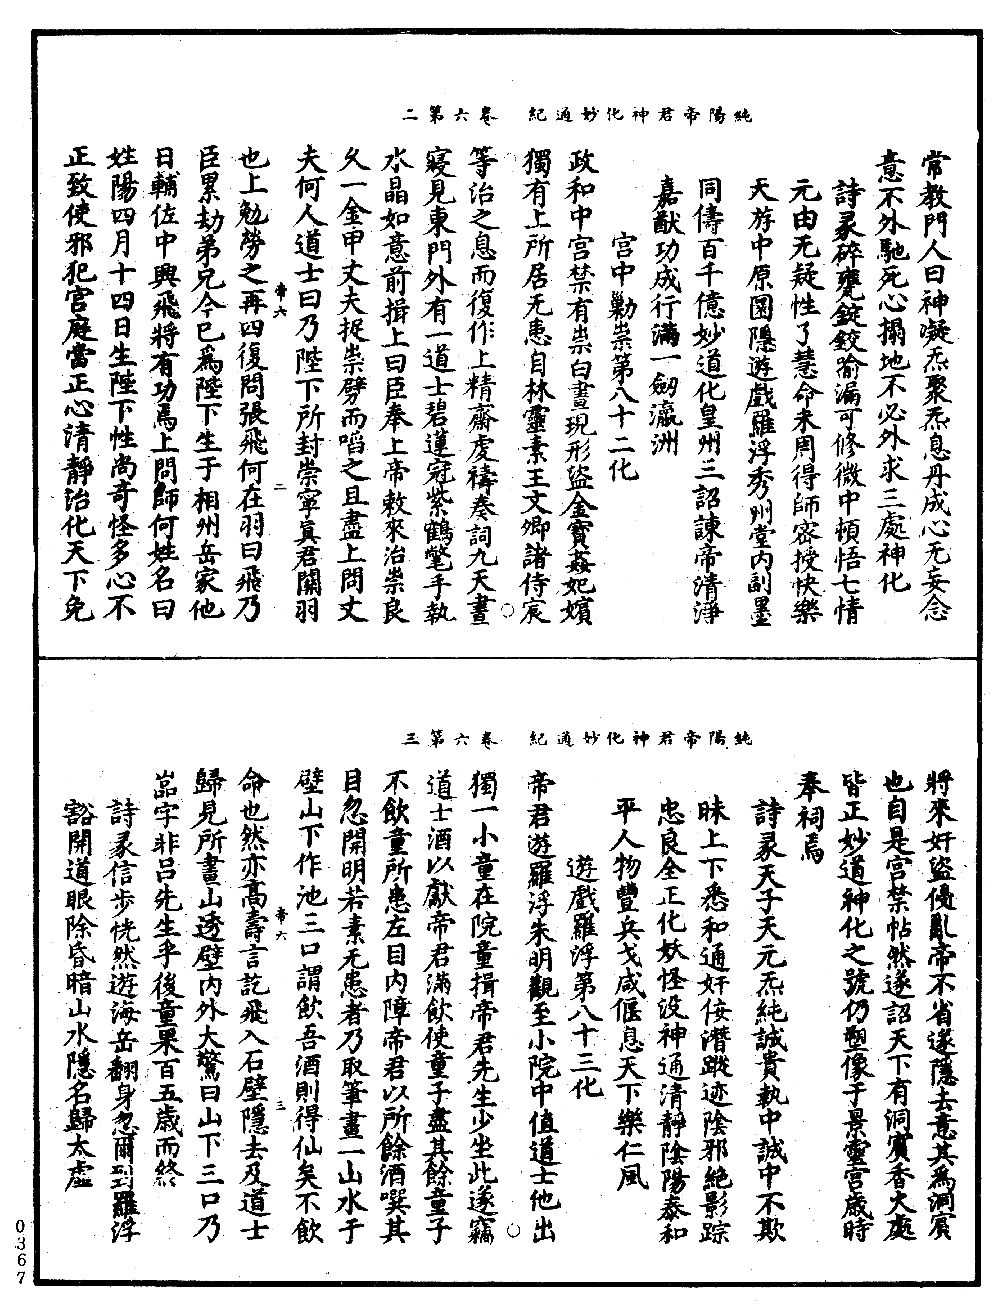 純陽帝君神化妙通紀　卷六第二
常教門人曰神凝炁聚炁息丹成心无妄念
意不外馳死心搨地不必外求三處神化
詩彖碎甕錠鉸喻漏可修微中頓悟七情
元由无疑性了慧命未周得師密授快樂
天游中原園隱遊戲羅浮秀州堂内副墨
同儔百千億妙道化皇州三詔諫帝清淨
嘉猷功成行滿一劒瀛洲
宫中勦祟第八十二化
政和中宫禁有祟白晝現形盜金寶姦妃嬪
獨有上所居无患自林靈素王文卿諸侍宸
等治之息而復作上精齋虔禱奏詞九天晝
寢見東門外有一道士碧蓮冠紫鶴氅手執
水晶如意前揖上曰臣奉上帝敕來治祟良
久一金甲丈夫捉祟劈而啗之且盡上問丈
夫何人道士曰乃陛下所封崇寧真君關羽
也上勉勞之再四復問張飛何在羽曰飛乃
臣累劫弟兄今已爲陛下生于相州岳家他
日輔佐中興飛將有功焉上問師何姓名曰
姓陽四月十四日生陛下性尚奇怪多心不
正致使邪犯宫庭當正心清靜治化天下免
帝六
二
純陽帝君神化妙通紀　卷六第三
將來奸盜優亂帝不省遂隱去意其爲洞賓
也自是宫禁帖然遂詔天下有洞賓香火處
皆正妙道神化之號仍塑像于景靈宫歲時
奉祠焉
詩彖天子天元炁純誠貴執中誠中不欺
昧上下悉和通奸佞潛蹤迹陰邪絶影踪
忠良全正化妖怪没神通清靜陰陽泰和
平人物豐兵戈咸偃息天下樂仁風
遊戲羅浮第八十三化
帝君遊羅浮朱明觀至小院中值道士他出
獨一小童在院童揖帝君先生少坐此遂竊
道士酒以獻帝君滿飲使童子盡其餘童子
不飲童所患左目内障帝君以所餘酒噀其
目忽開明若素无患者乃取筆畫一山水于
壁山下作池三口謂飲吾酒則得仙矣不飲
命也然亦高壽言訖飛入石壁隱去及道士
歸見所畫山透壁内外大驚曰山下三口乃
嵓字非吕先生乎後童果百五歲而終
詩彖信步恍然遊海岳翻身忽爾到羅浮
豁開道眼除昏暗山水隱名歸太虚
帝六
三
0367